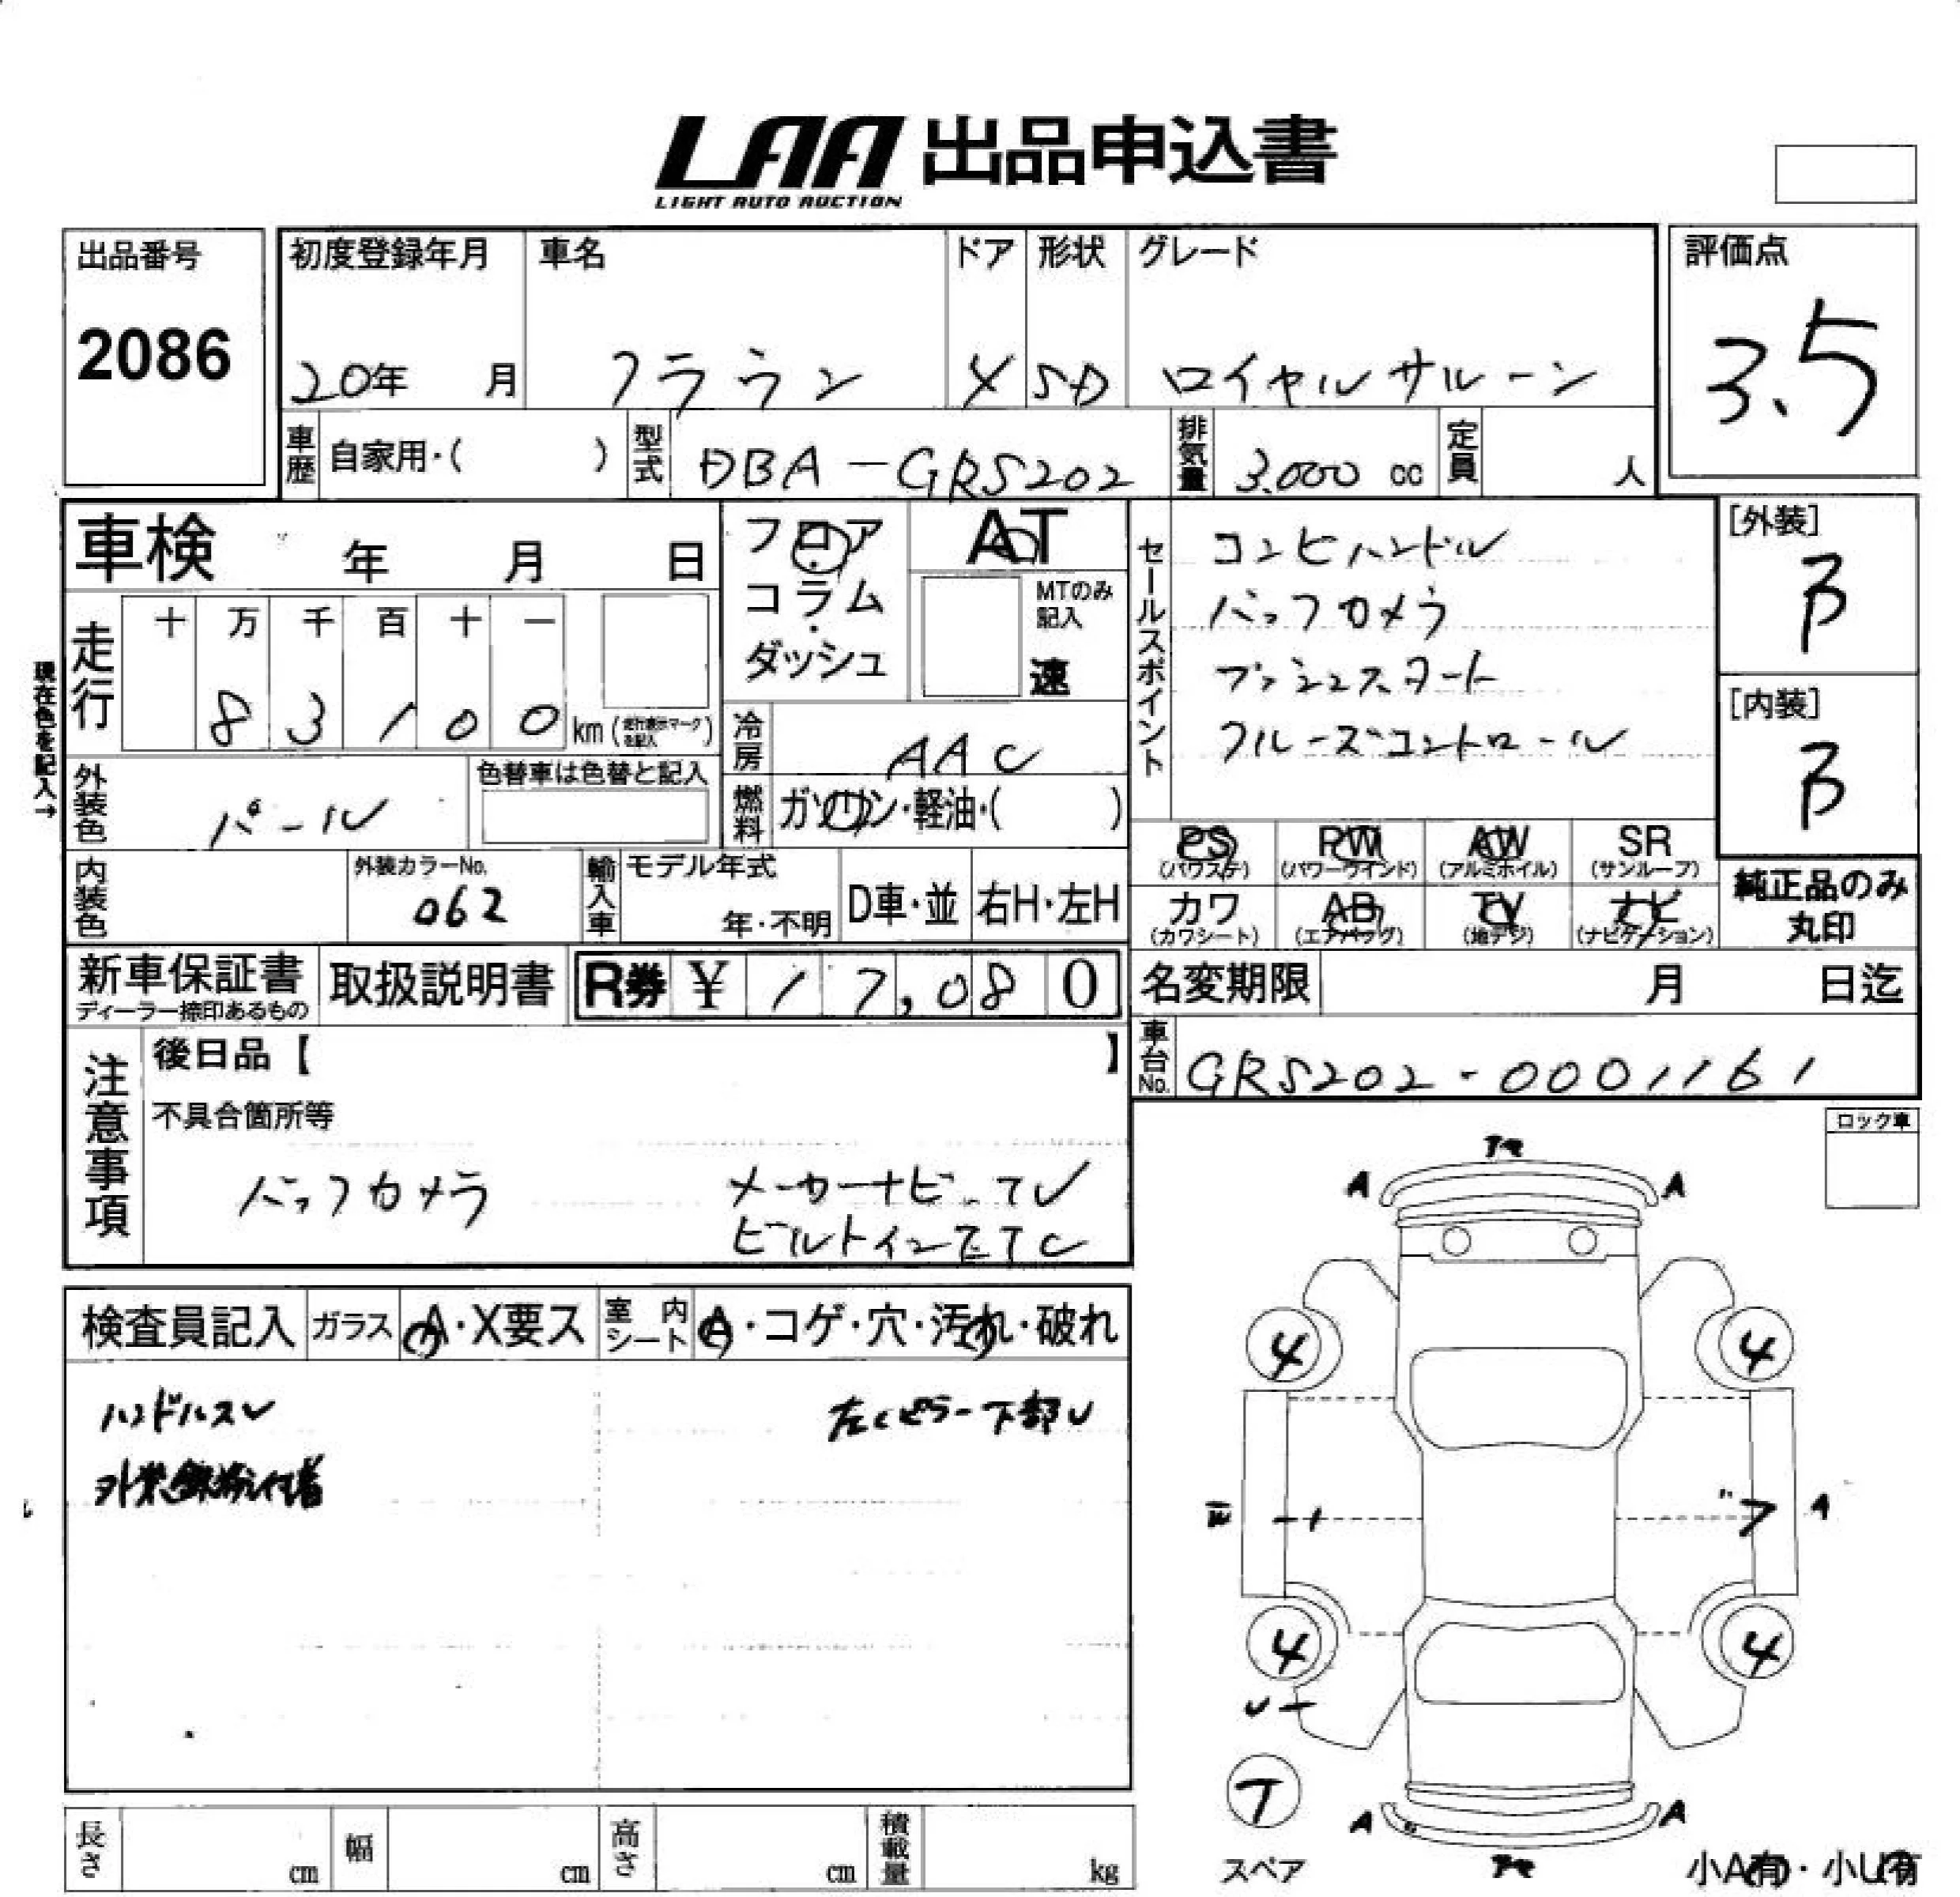 LAA 出品申込書
LIGHT AUTO AUCTION
出品番号
2086
初度登録年月
20年 月
車名
クラウン
ドア
4
形状
SD
グレード
ロイヤルサルーン
評価点
3.5
車歴 自家用・( )
型式 DBA-GRS202
排気量 3.000 cc
定員 人
車検 年 月 日
フロア・コラム・ダッシュ
AT
MTのみ記入
速
セールスポイント
コンビハンドル
バックカメラ
プッシュスタート
クルーズコントロール
[外装]
B
[内装]
B
現在色を記入→
走行 十 万 千 百 十 一
8 3 1 0 0 km (走行表示マークを記入)
冷房 AAC
外装色 パール
色替車は色替と記入
燃料 ガソリン・軽油・( )
内装色
外装カラーNo.
062
輸入車 モデル年式
年・不明
D車・並
右H・左H
PS (パワステ)
PW (パワーウインド)
AW (アルミホイル)
SR (サンルーフ)
カワ (カワシート)
AB (エアバッグ)
TV (地デジ)
ナビ (ナビゲーション)
純正品のみ
丸印
新車保証書
ディーラー捺印あるもの
取扱説明書
R券 ¥ 17,080
名変期限 月 日迄
車台No. GRS202-0001161
注意事項
後日品【 】
不具合箇所等
バックカメラ
メーカーナビ-TV
ビルトインETC
ロック車
検査員記入 ガラス A・X要ス 室内シート A・コゲ・穴・汚れ・破れ
ハンドルスレ
外装鉄粉付着
左Cピラー下部U
A A
4 4
A
4 4
U
T
スペア
A A
小A有・小U有
長さ cm
幅 cm
高さ cm
積載量 kg